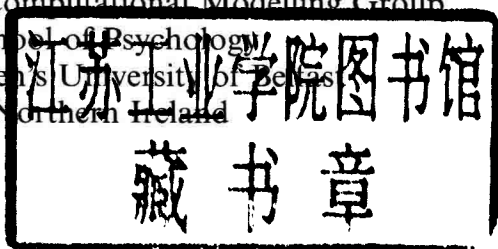 Computational Modelling Group
School of Psychology
Queen's University of Belfast
Northern Ireland
江苏工业学院图书馆
藏书章